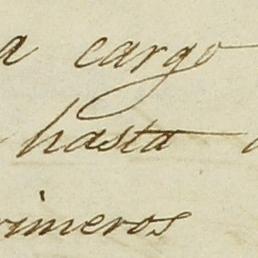 a cargo
hasta
rimeros